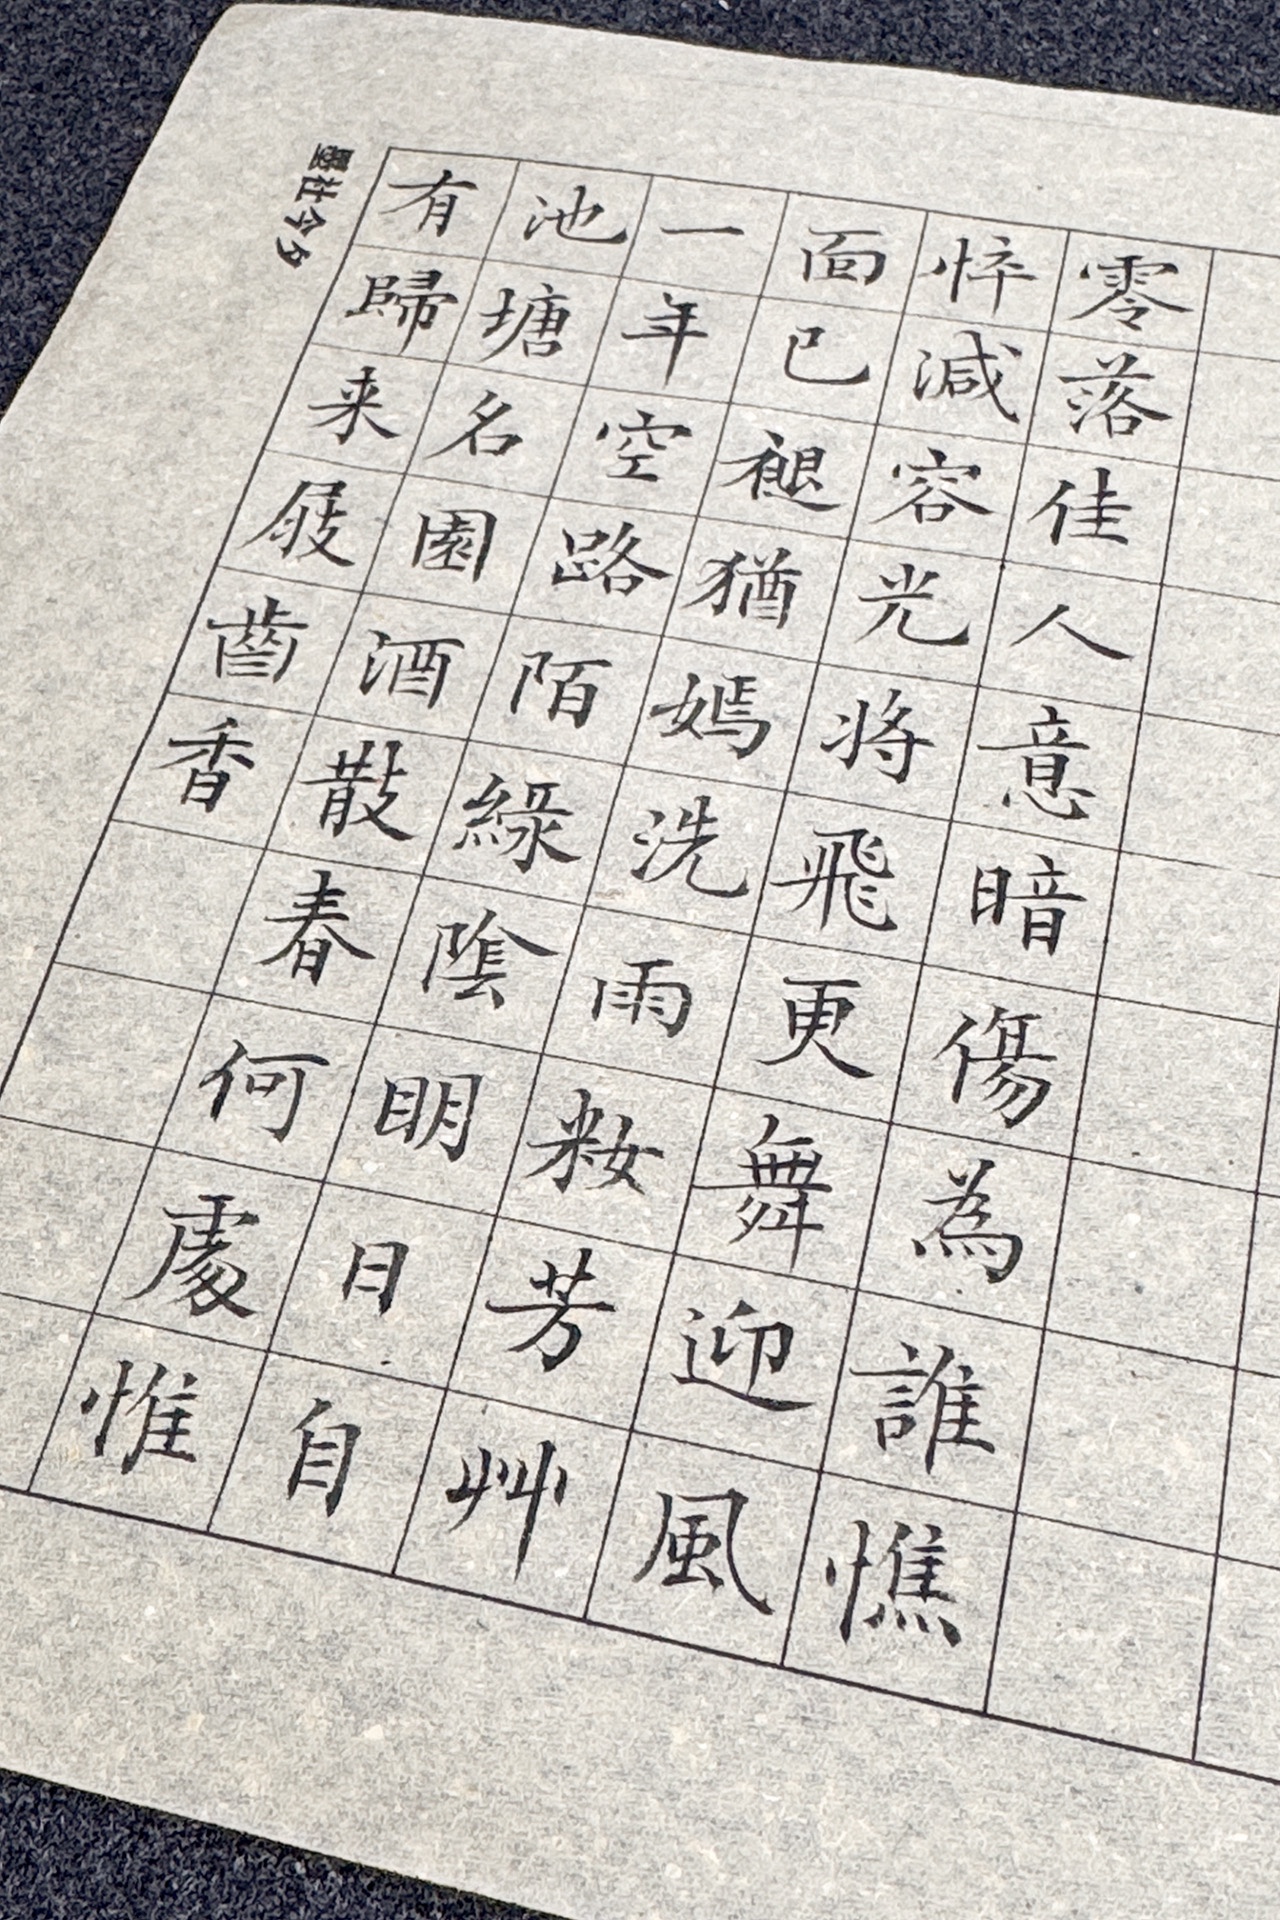 零落佳人意暗傷為誰憔
悴減容光將飛更舞迎風
面已褪猶嫣洗雨籹芳艸
一年空路陌綠陰明日自
池塘名園酒散春何處惟
有歸来屐齒香